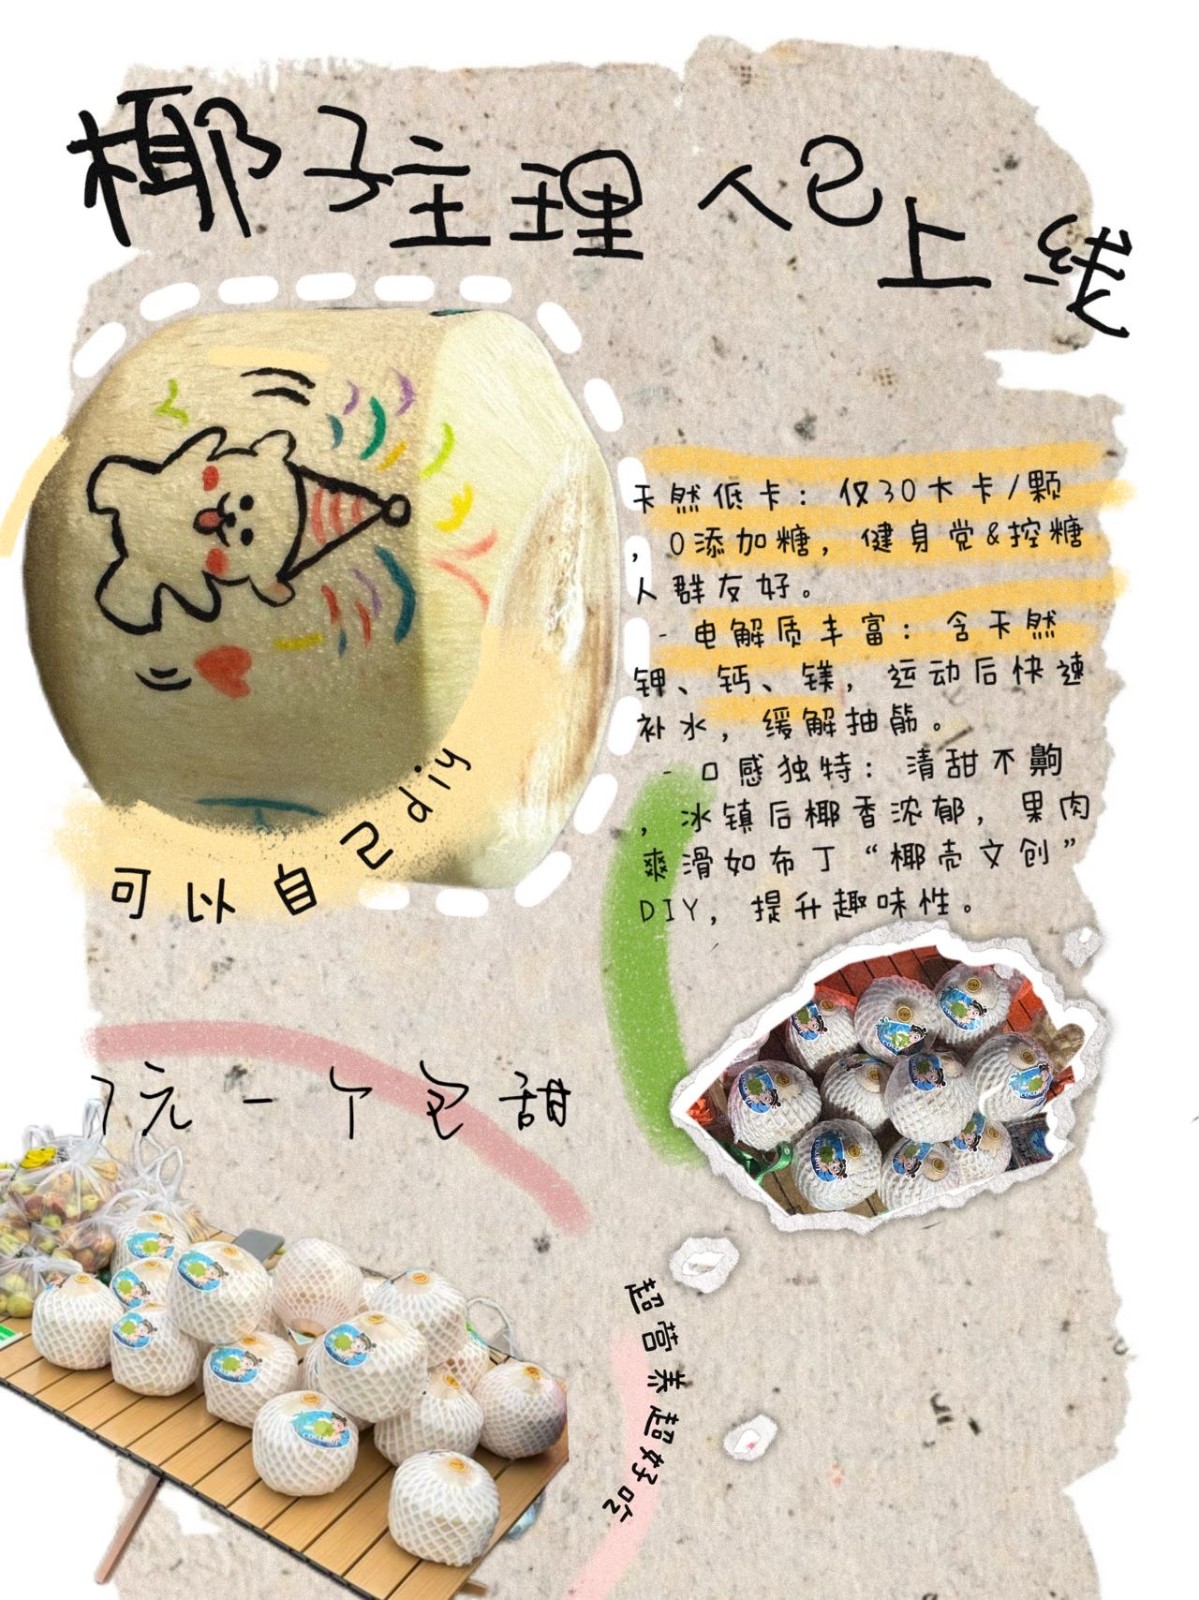 椰子主理人已上线
天然低卡：仅30大卡/颗
，0添加糖，健身党&控糖
人群友好。
- 电解质丰富：含天然
钾、钙、镁，运动后快速
补水，缓解抽筋。
- 口感独特：清甜不齁
，冰镇后椰香浓郁，果肉
爽滑如布丁“椰壳文创”
DIY，提升趣味性。
可以自己diy
7元一个包甜
超营养超好吃